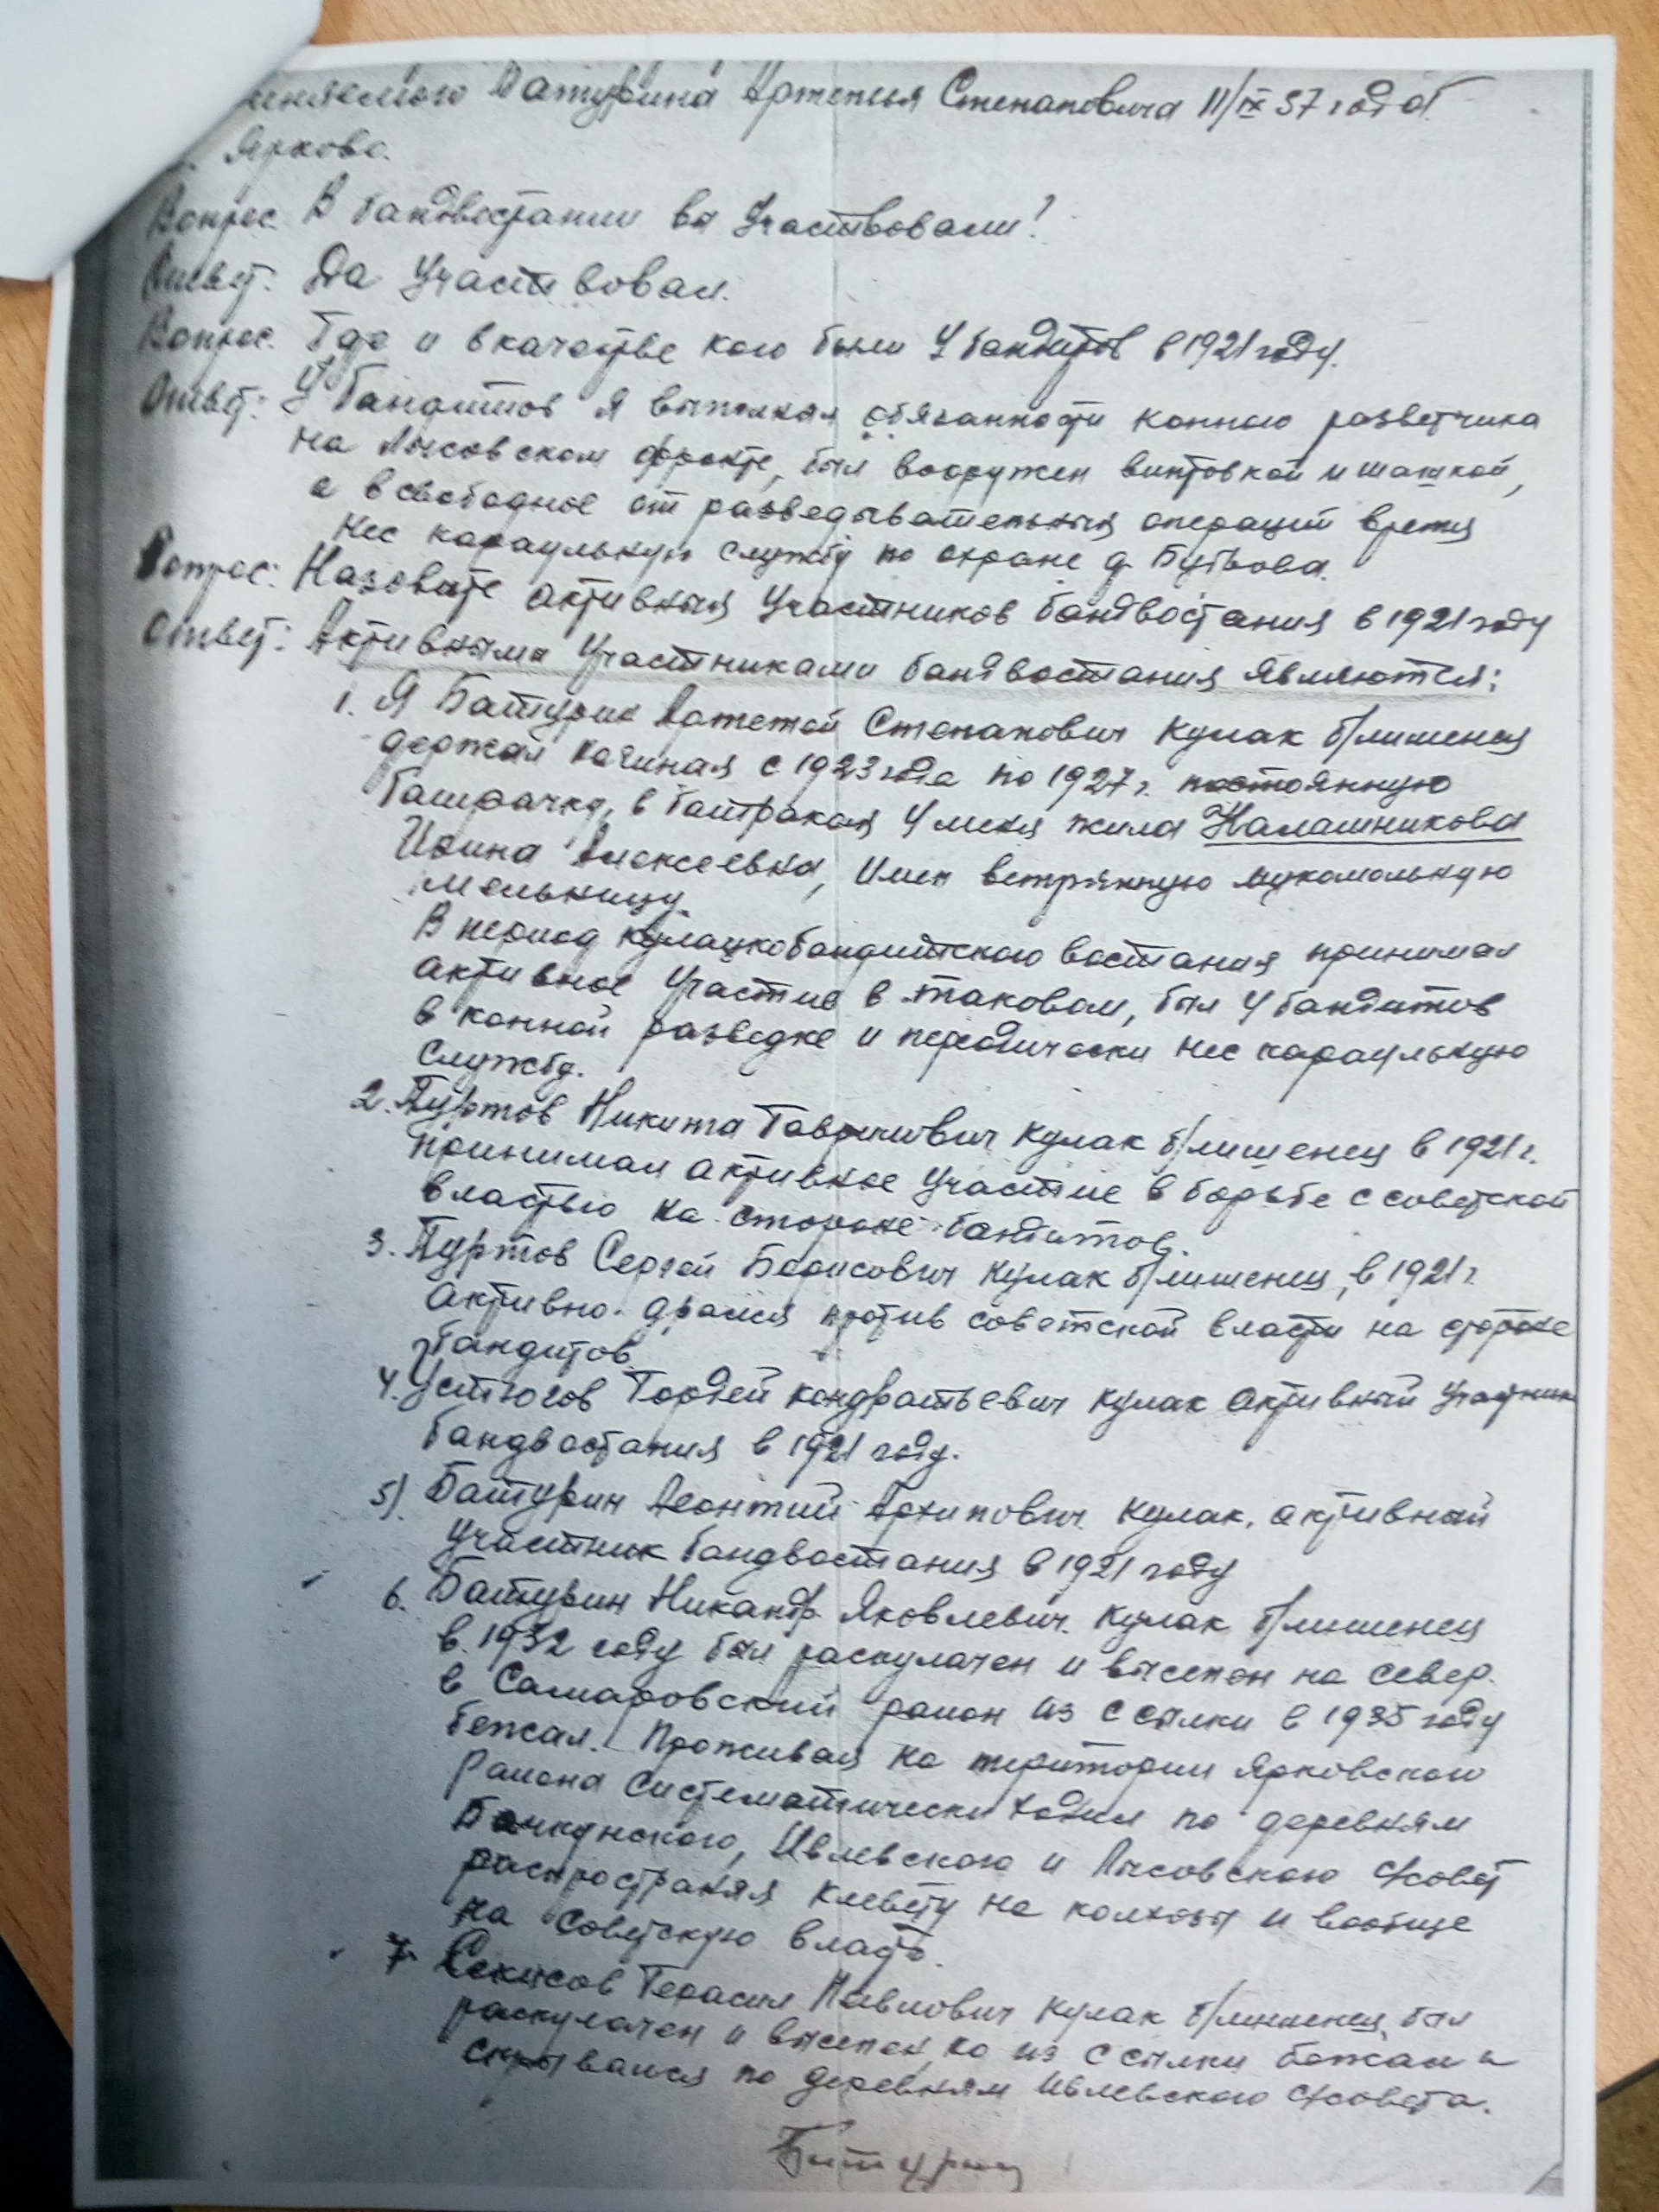 Батурина Артемья Степановича 11/IX 37 года.
Яркова.
Вопрос. В бандвостании вы участвовали?
Ответ. Да участвовал.
Вопрос. Где и в качестве кого были у бандитов в 1921 году.
Ответ: У бандитов я выполнял обязанности конного разветчика
на Лысовском фронте, был вооружен винтовкой и шашкой,
а в свободное от разведывательных операций время
нес караульную службу по охране д.
Вопрос: Назовите активных участников бандвостания в 1921 году
Ответ: Активными участниками бандвостания являются:
1. Я Батурин Артемей Степанович кулак б/лишенец
держал начиная с 1923 года по 1927 г. постоянную
батрачку, в батраках у меня жила Калашникова
Ирина Алексеевна, имел ветрянную мукомольную
мельницу.
В период кулацкобандитского востания принимал
активное участие в таковом, был у бандитов
в конной разведке и переодически нес караульную
службу.
2. Пуртов Никита Гаврилович кулак б/лишенец в 1921 г.
принимал активное участие в борьбе с советской
властью на стороне бандитов.
3. Пуртов Сергей Борисович кулак б/лишенец, в 1921 г.
активно дрался против советской власти на стороне
бандитов.
4. Устюгов Гордей Кондратьевич кулак активный участник
бандвостания в 1921 году.
5) Батурин Леонтий Архипович кулак, активный
участник бандвостания в 1921 году
6. Батурин Никандр Яковлевич. кулак б/лишенец
в 1932 году был раскулачен и выселен на север.
в Самаровский район из ссылки в 1935 году
бежал. Проживая на територии Ярковского
района систематически ходил по деревням
Бачкунского, Ивлевского и Лысовского с/совет
распространяя клевету на колхозы и вообще
на советскую власть.
7. Герасим Павлович кулак б/лишенец, был
раскулачен и выселен, но из ссылки бежал и
скрывался по деревням Ивлевского с/совета.
Батурин